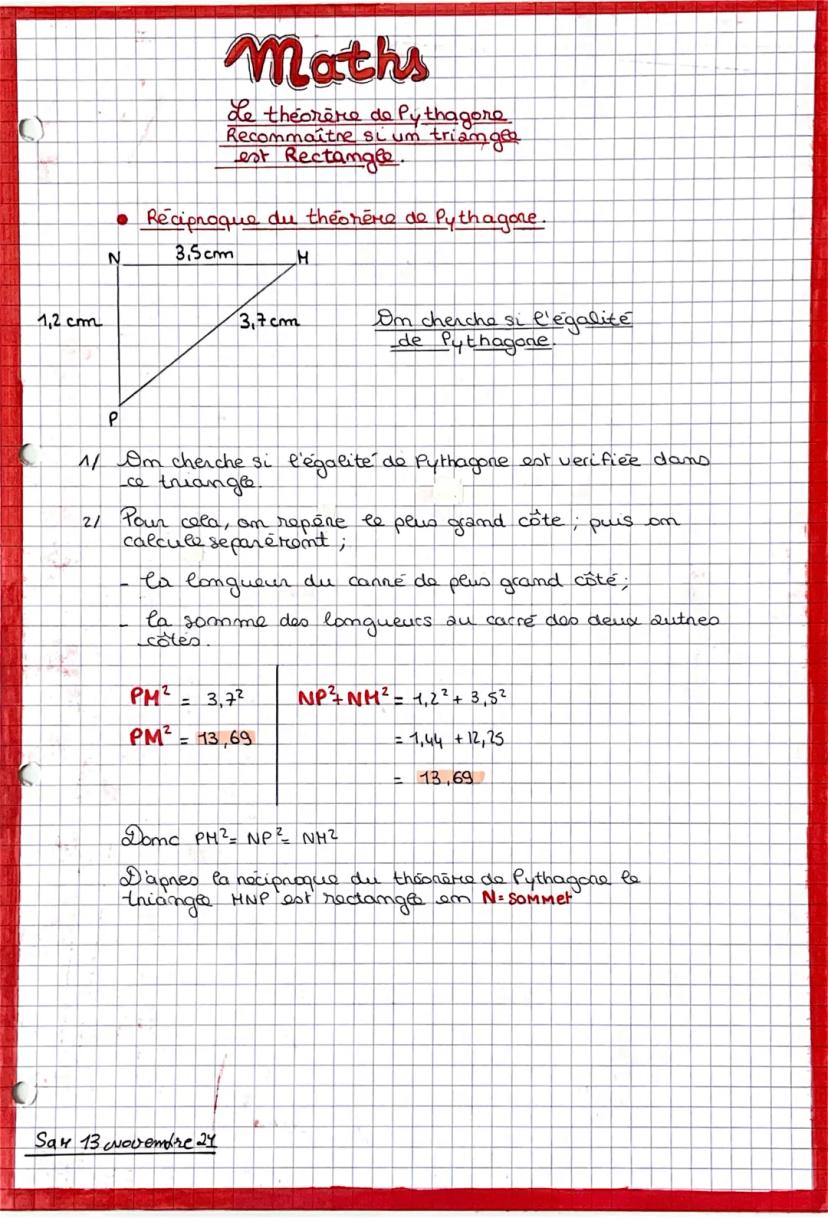 Maths
Le théorème de Pythagore
Reconnaître si un triangle
est Rectangle.
• Réciproque du théorème de Pythagore.
N 3,5 cm M
1,2 cm 3,7 cm On cherche si l'égalité
de Pythagore.
P
1/ On cherche si l'égalité de Pythagore est verifiée dans
ce triangle.
2/ Pour cela, on repère le plus grand côte ; puis on
calcule separèment ;
- la longueur du carré de plus grand côté ;
- la somme des longueurs au carré des deux autres
côtés.
PM² = 3,7² NP²+NM² = 1,2² + 3,5²
PM² = 13,69 = 1,44 + 12,25
= 13,69
Donc PM² = NP² = NM²
D'apres la réciproque du théorème de Pythagore le
triangle MNP est rectangle en N = sommet
Sam 13 novembre 21